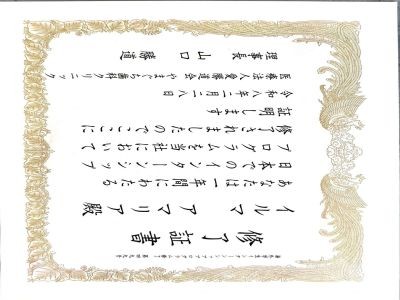 修了証書
イルマ アマリア 殿
あなたは一年間にわたる
日本でのインターンシップ
プログラムを当社において
修了されましたのでここに
証明します
令和八年二月二八日
医療法人愛勝道会やまぐち歯科クリニック
理事長 山口 勝道